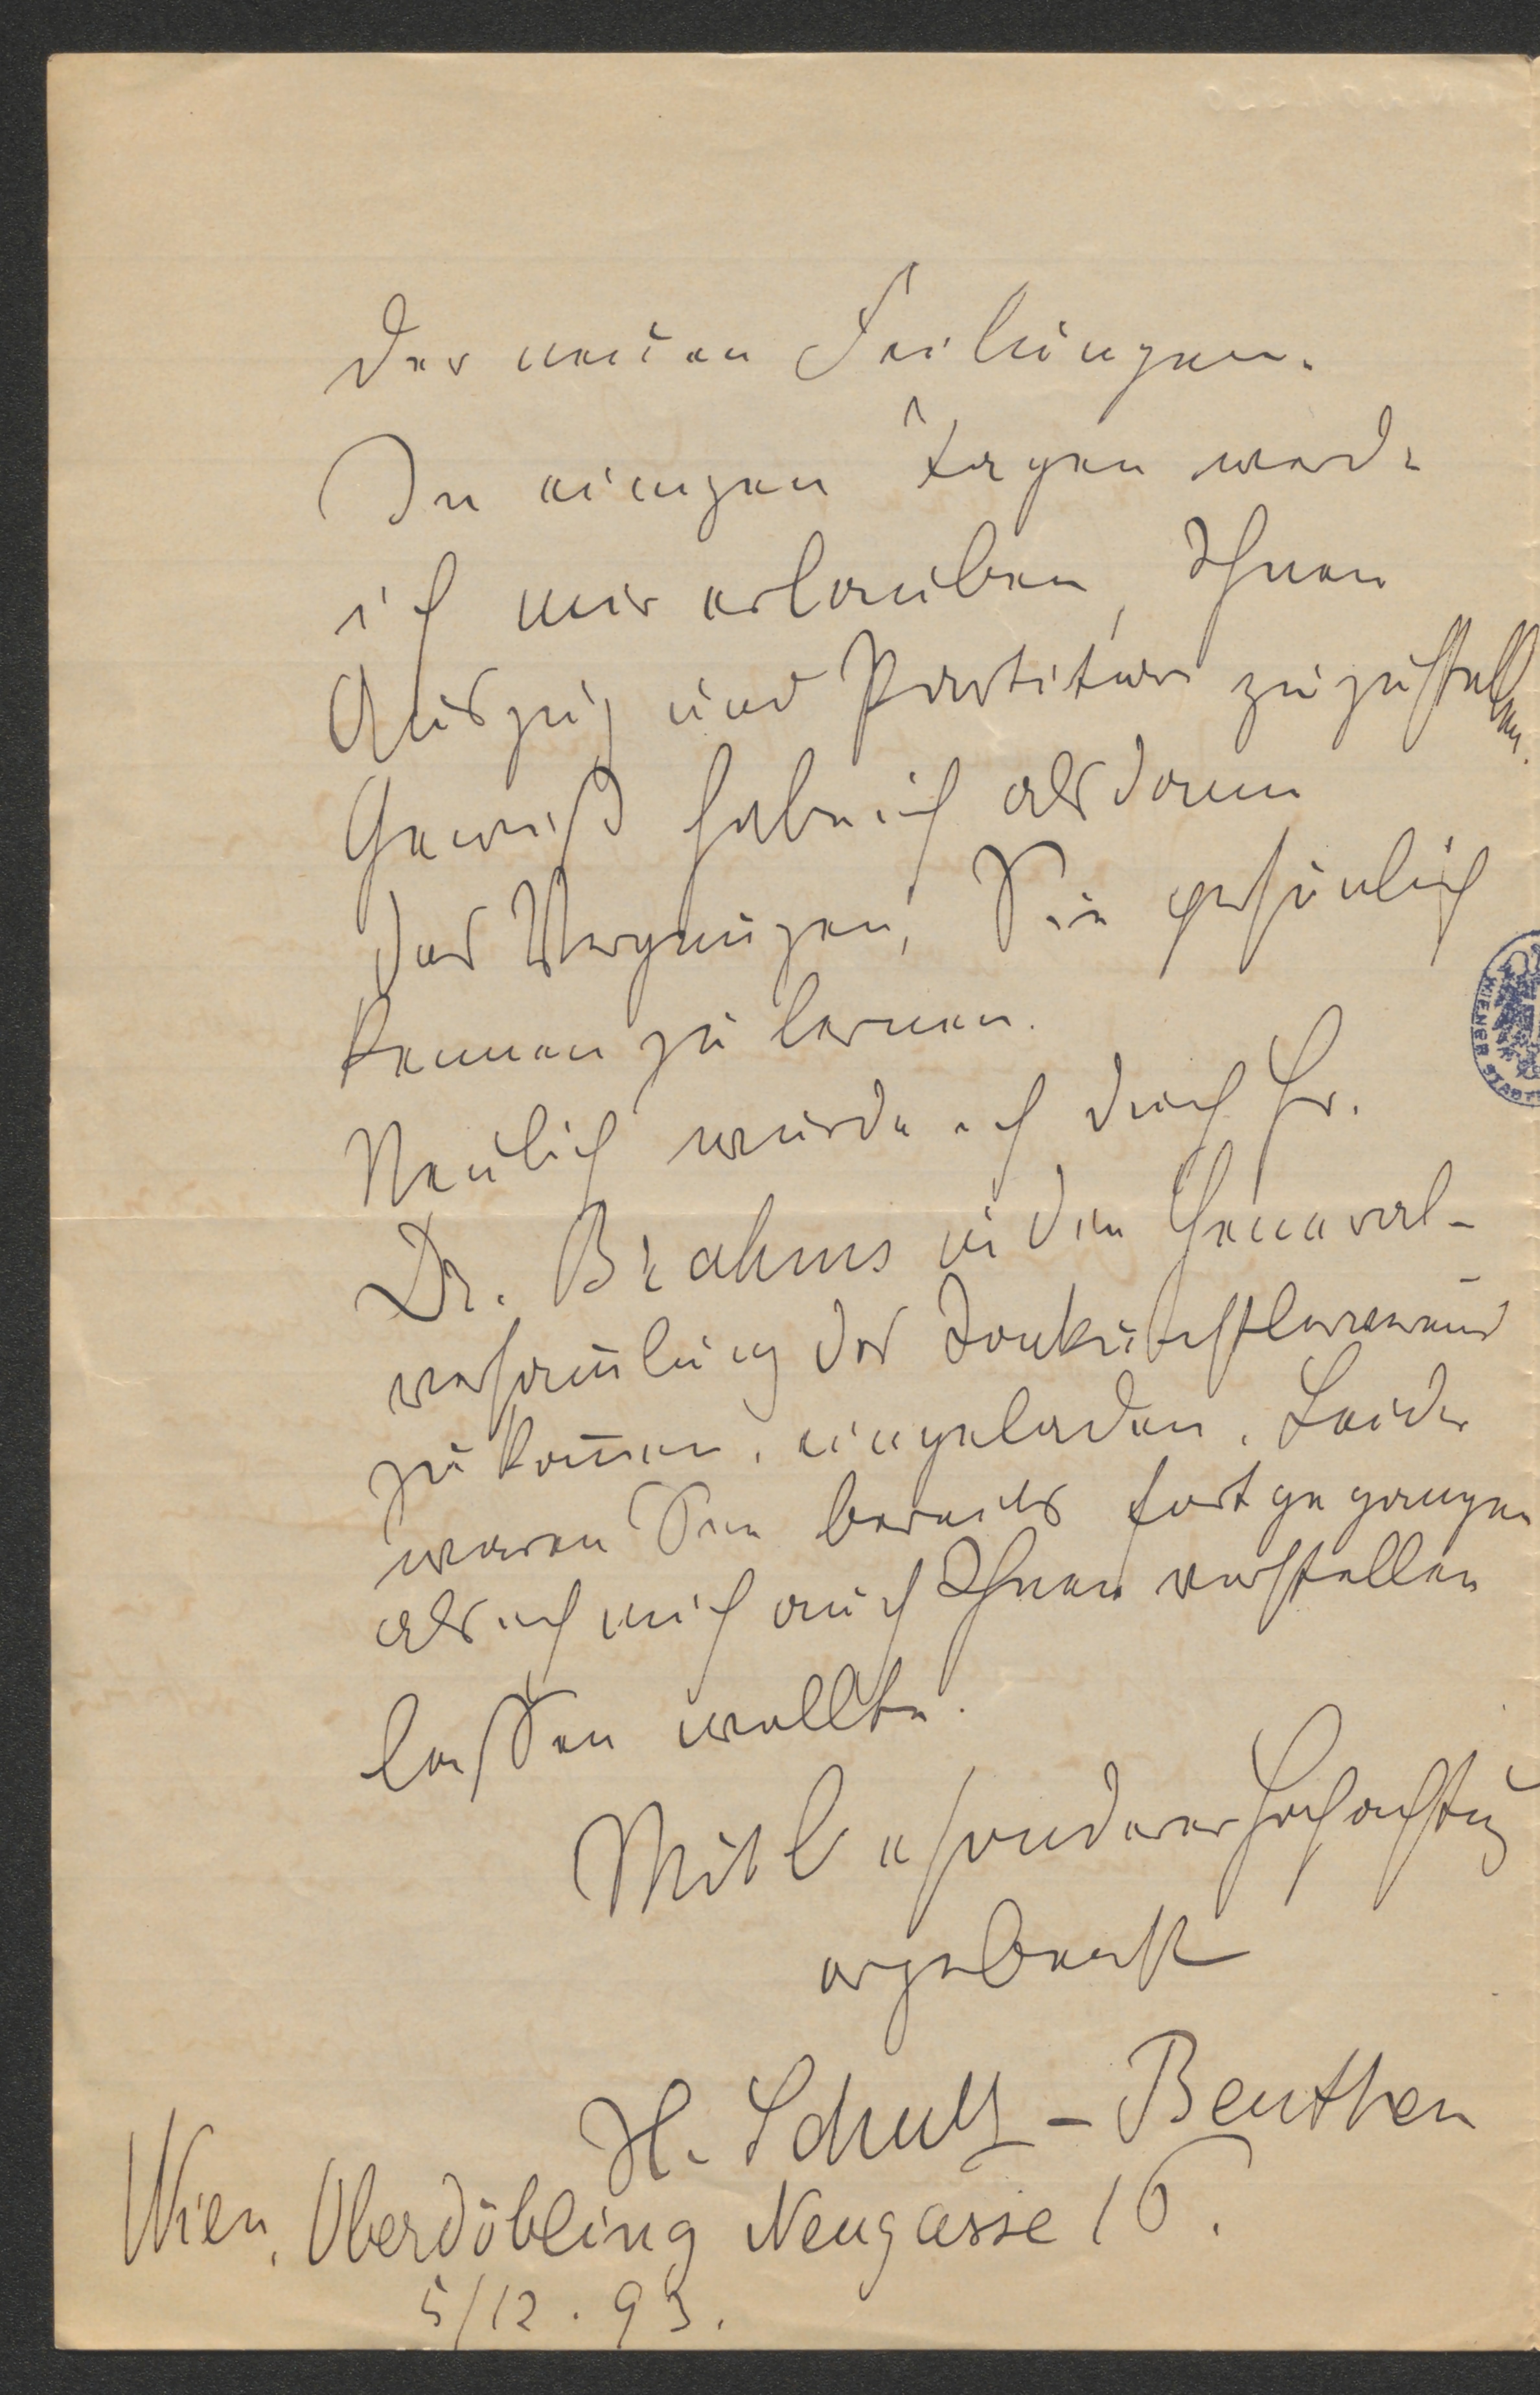 der neuen
In einigen Tagen werde
ich mir erlauben, Ihnen
Auszug und Partitur zuzustellen.
Gewiß habe ich alsdann
das Vergnügen, Sie persönlich
kennen zu lernen.
Neulich wurde ich durch Hr.
Dr. Brahms in die General-
versam̄lung des Tonkünstlervereins
zu kom̄en, eingeladen. Leider
waren Sie bereits fortgegangen
als ich mich auch Ihnen vorstellen
lassen wollte.
Mit besonderer Hochachtung
ergebenst
H. Schulz-Beuthen
Wien, Oberdöbling Neugasse 16.
5/12. 93.
WIENER STADT